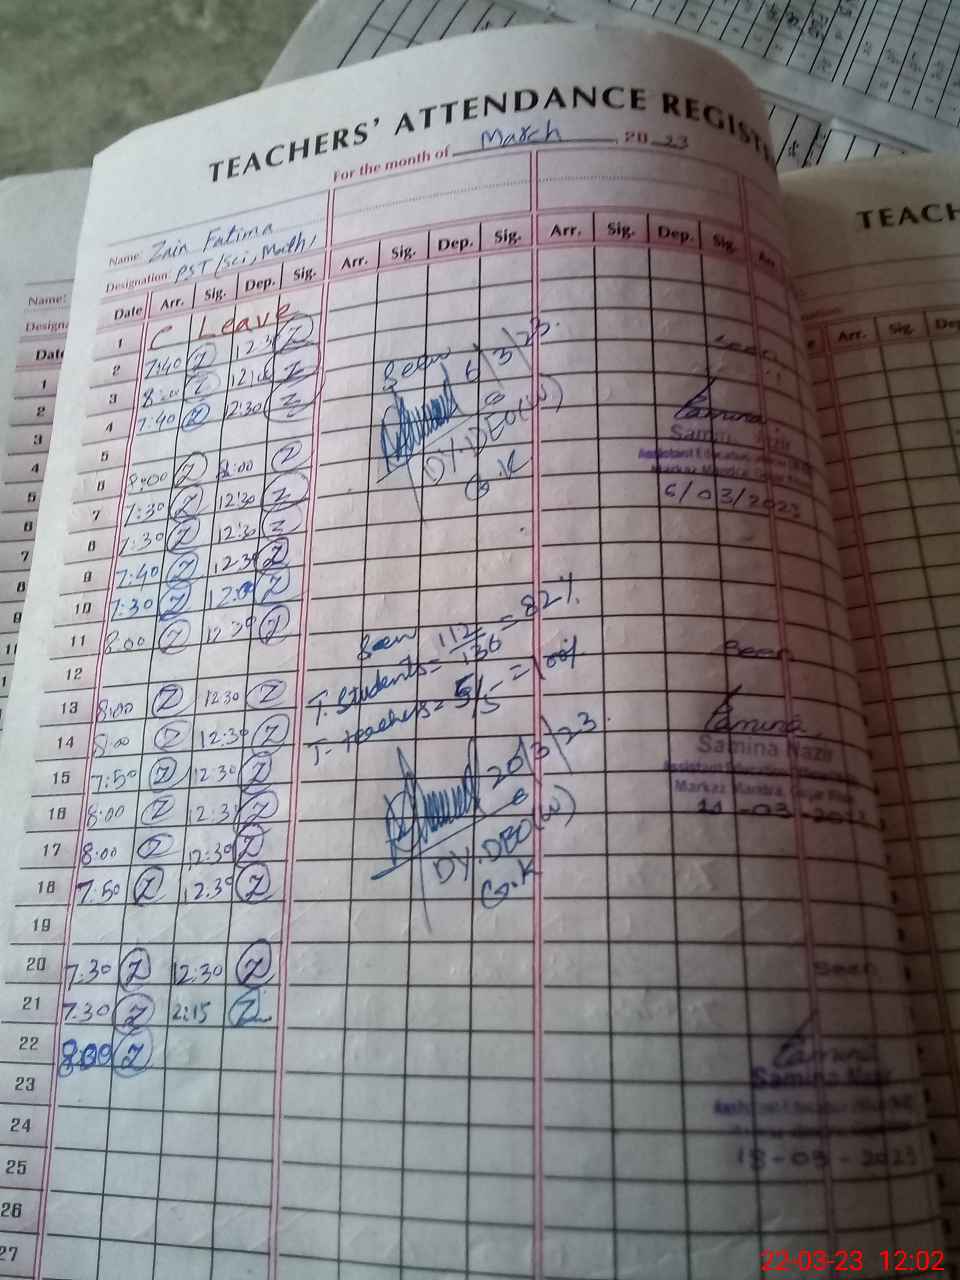 TEACHERS' ATTENDANCE REGIST
For the month of March 2023
Name: Zain Fatima
Designation: PST (Sci, Math)
Date Arr. Sig. Dep. Sig. Arr. Sig. Dep. Sig. Arr. Sig. Dep. Sig. Arr.
1 C Leave
2 7:40 Z 12:3 Z
3 8:00 Z Z
4 7:40 Z 2:30 Z
5
6 8:00 Z 8:00 Z
7 7:30 Z 12:30 Z
8 7:30 Z 12:30 Z
9 7:40 Z 12:30 Z
10 7:30 Z Z
11 8:00 Z 12:30 Z
12
13 8:00 Z 12:30 Z
14 8:00 Z 12:30 Z
15 7:50 Z 12:30 Z
16 8:00 Z 12:3 Z
17 8:00 Z 12:30 Z
18 7:50 Z 12:30 Z
19
20 7:30 Z 12:30 Z
21 7:30 Z 2:15 Z
22 8:00 Z
23
24
25
26
27
Seen
6/3/23
DY.DEO(W)
G.K
Seen
T. Students = 112/136 = 82%
T- teachers = 5/5 = 100%
20/3/23
DY.DEO(W)
G.K
Seen
Samina
Samina Nazir
Assistant Education
Markaz Mandra, Gujar Khan
6/03/2023
Seen
Samina
Samina Nazir
Assistant Education
Markaz Mandra, Gujar Khan
Seen
Samina
Samina Nazir
18-03-2023
TEACH
Name:
Date
1
2
3
4
5
6
7
8
9
Arr. Sig. De
22-03-23 12:02